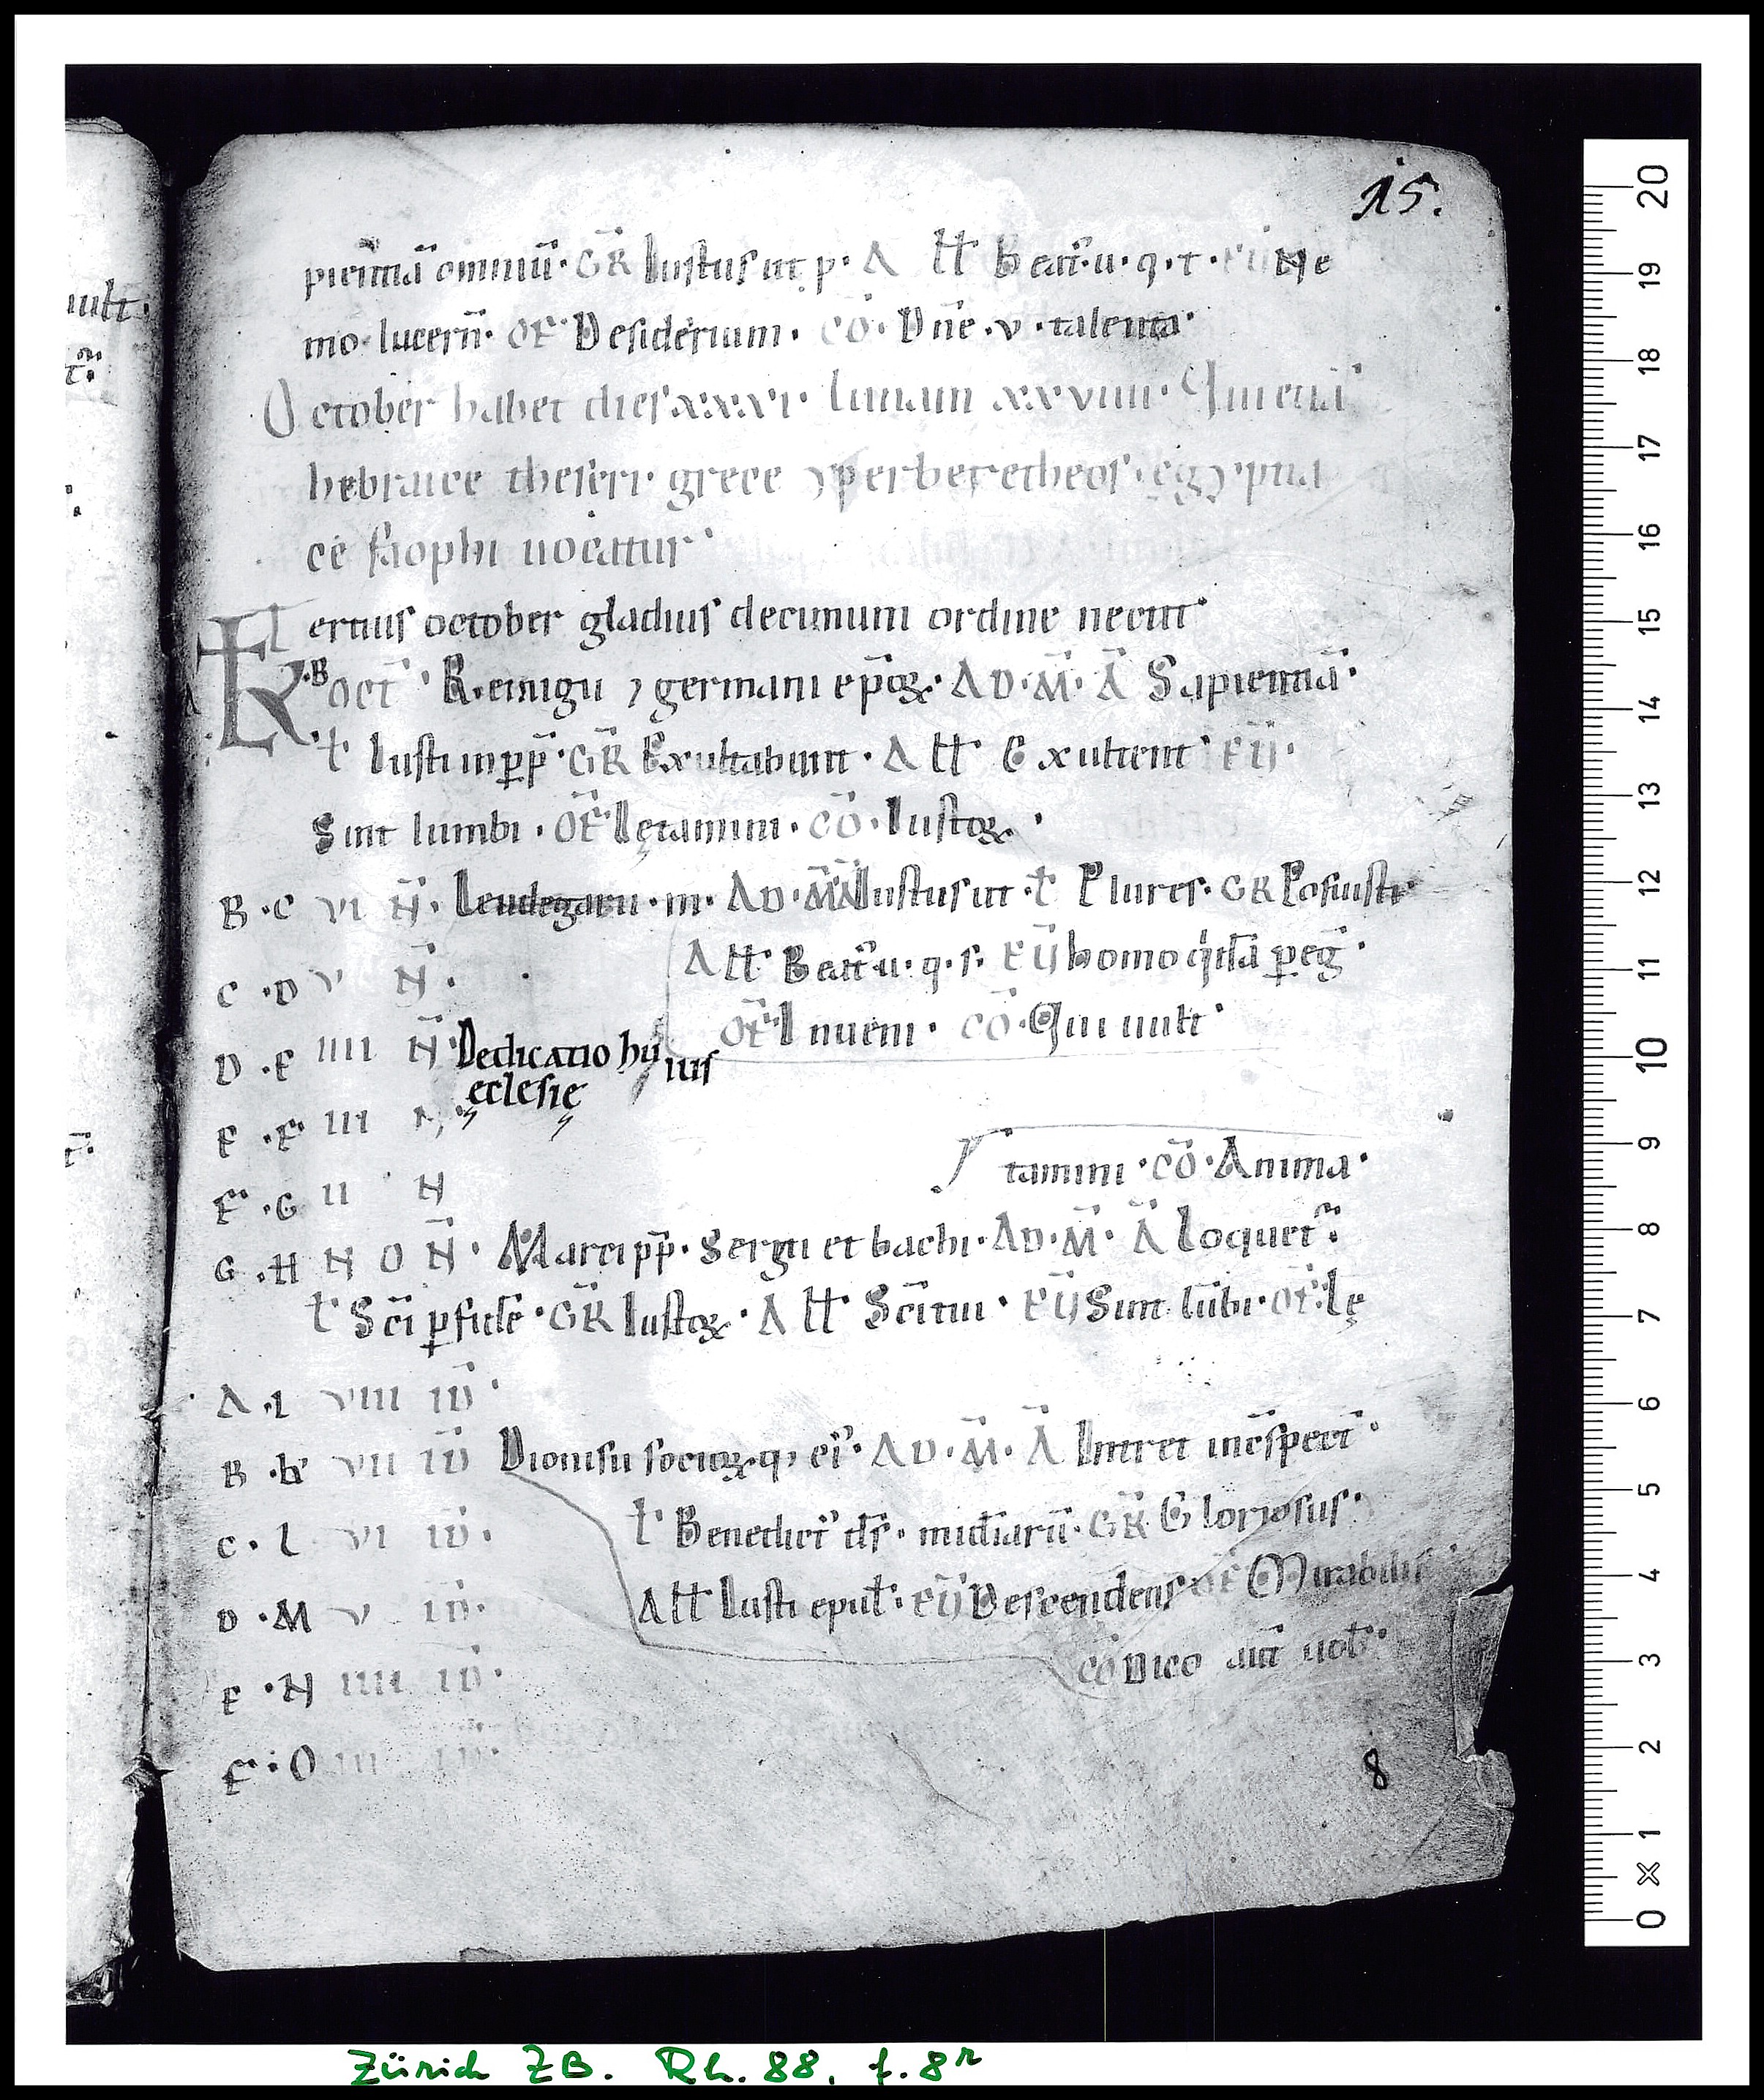 15.
pientiā omniū· GR̄ Iustus ut p· A ll̄ Beat᷒·u·q·t· EŪ Ne
mo lucern̄· OF̄ Desiderium· CŌ· Dn̄e·v·talenta·
October habet dies xxxi· lunam xxviiii· Qui etiā
hebraice theseri· grece yperberetheos· egyptia
ce faophi uocatur·
Tertius october gladius decimum ordine nectit·
KL ·B OCT̄· Remigii ⁊ germani ep̄oꝝ· AD·M̄· Ā Sapientiā·
ł Iusti inꝑp̄· GR̄ Exultabunt· A ll̄ Exultent· EŪ·
Sint lumbi· OF̄ Lętamini· CŌ· Iustoꝝ·
B ·C VI N̄· Leudegarii·m· AD·M̄ Ā Iustus ut· ł Plures· GR Posuisti·
A ll̄ Beat᷒ u·q·s· EŪ homo q̇dā ꝑeḡ·
C ·D V N̄·
OF̄ Inueni· CŌ· Qui uult·
D ·E IIII N̄· Dedicatio hu
ius
eclesię
E ·F III N·
tamini· CŌ· Anima·
F ·G II N
G ·H N O N̄· Marci pp̄· Sergii et bachi· AD·M̄· Ā Loquet᷒·
ł Sc̄i ꝑ fidē· GR̄ Iustoꝝ· A ll̄ Sc̄i tui· EŪ Sint lūbi· OF̄· Lę
A ·I VIII ID̄·
B ·k VII ID̄ Dionisii socioꝝ·q; ei᷒· AD·M̄· Ā Intret in c̄spect̄·
C ·L VI ID̄· ł Benedict᷒ dś· GR̄ Gloriosus·
D ·M V ID̄· A ll̄ Iusti epul̄· EŪ Descendens OF̄ Mirabilis
CŌ Dico aūt uob̄·
E ·N IIII ID̄·
F ·O III ID̄·
8
0 × 1 2 3 4 5 6 7 8 9 10 11 12 13 14 15 16 17 18 19 20
Zürich ZB. Rh. 88, f. 8r